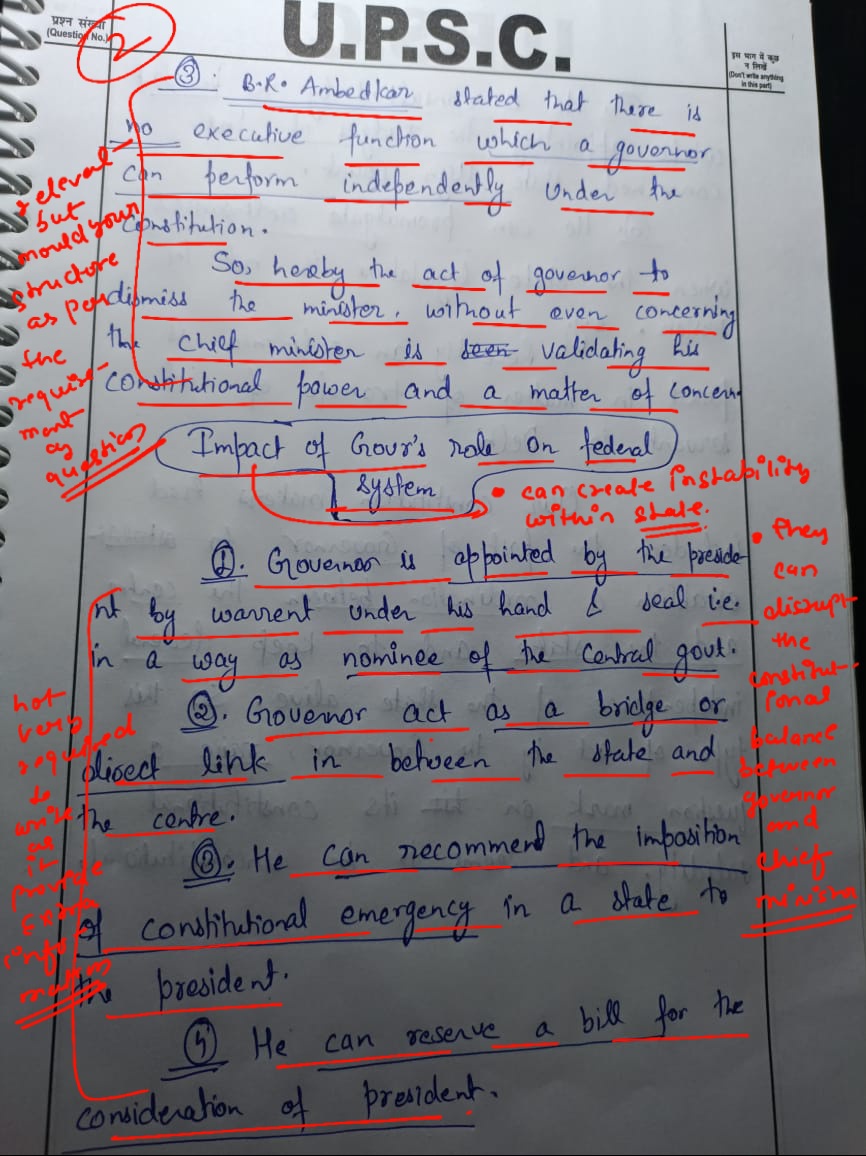 प्रश्न संख्या
(Question No.)
2
U.P.S.C.
इस भाग में कुछ
न लिखें
(Don't write anything
in this part)
③. B.R. Ambedkar stated that there is
no executive function which a governor
can perform independently under the
Constitution.
So, hereby the act of governor to
dismiss the minister, without even concerning
the chief minister is seen validating his
constitutional power and a matter of concern
relevant
but
mould your
structure
as per
the
require-
ment
of
question
Impact of Gover's role on federal
system
• can create instability
within state.
①. Governor is appointed by the preside-
nt by warrent under his hand & seal i.e.
in a way as nominee of the Central govt.
②. Governor act as a bridge or
direct link in between the state and
the centre.
③. He can recommend the imposition
of constitutional emergency in a state to
the president.
④ He can reserve a bill for the
consideration of president.
• they
can
disrupt
the
constitut-
ional
balance
between
governor
and
chief
minister
not
very
required
to
write
as
it
provide
extra
info
mation